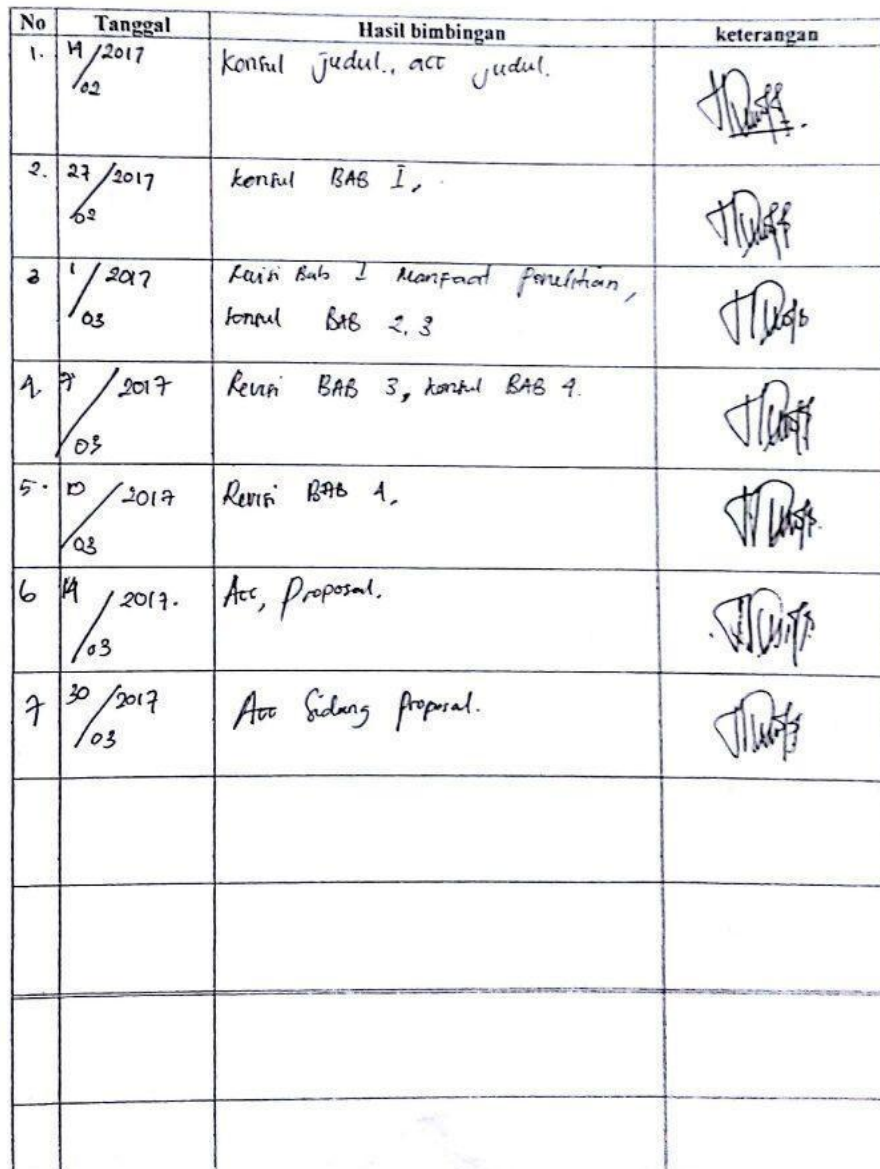 No Tanggal Hasil bimbingan keterangan
1. 14/02 2017 Konsul judul., acc judul.
2. 27/02 2017 konsul BAB I,
3 1/03 2017 Revisi Bab I Manfaat penelitian,
konsul BAB 2, 3
4. 7/03 2017 Revisi BAB 3, konsul BAB 4.
5. 10/03 2017 Revisi BAB 4,
6 14/03 2017. Acc, Proposal.
7 30/03 2017 Acc Sidang Proposal.